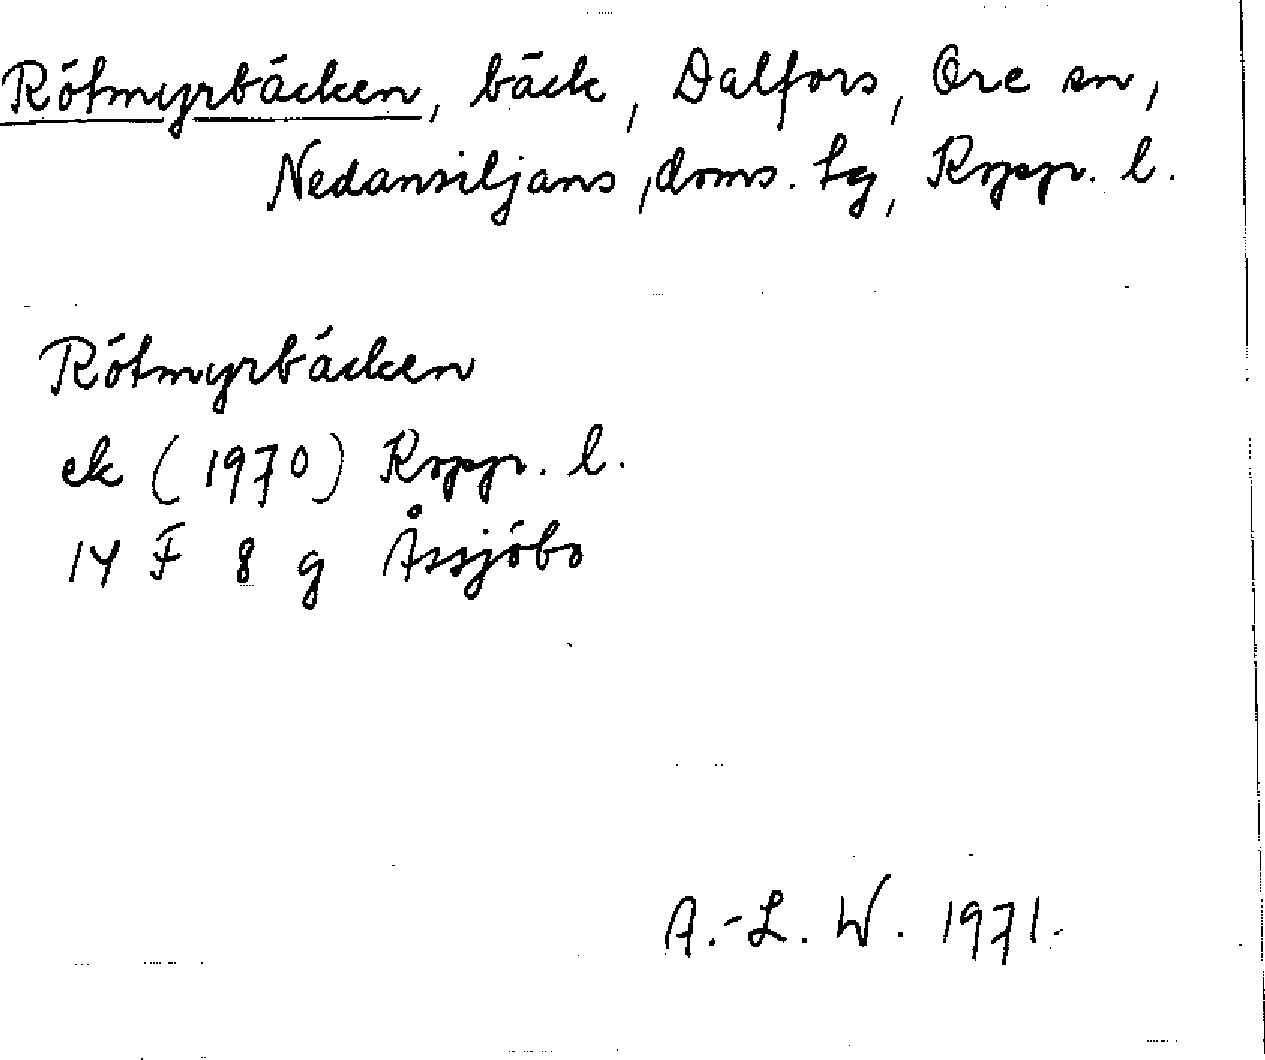 Rötmyrbäcken, bäck, Dalfors, Ore sn,
Nedansiljans, doms. tg, Kopp. l.
Rötmyrbäcken
ek (1970) Kopp. l.
14 F 8 g Åssjöbo
A.-L. W. 1971.